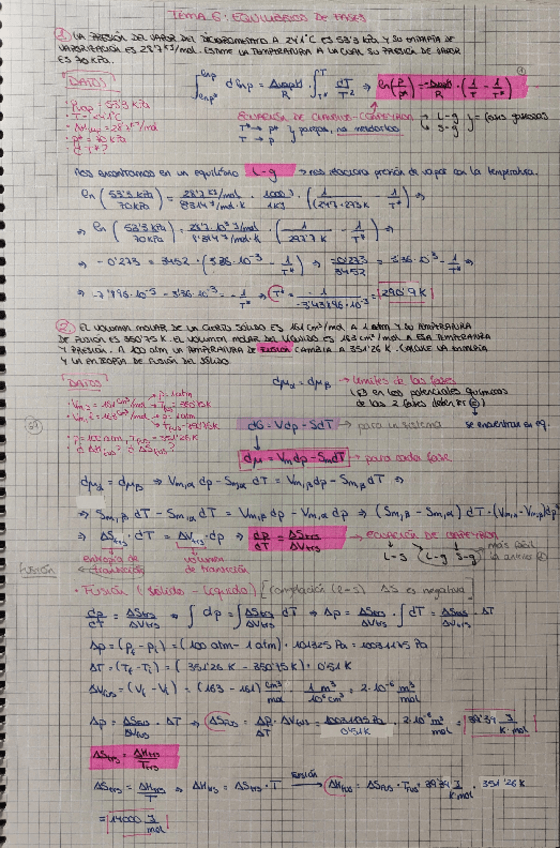 TEMA 5: EQUILIBRIOS DE FASES
① LA PRESIÓN DEL VAPOR DEL DICLOROMETANO A 24'1°C ES 53'3 KPa Y SU ENTALPIA DE
VAPORIZACIÓN ES 28'7 KJ/mol. ESTIME LA TEMPERATURA A LA CUAL SU PRESIÓN DE VAPOR
ES 70 KPa.
DATOS
∫ d ln p = ΔvapH/R · ∫ dT/T² ⇒ ln(p/p*) = -ΔvapH/R · (1/T - 1/T*)
ECUACIÓN DE CLAUSIUS-CLAPEYRON → L-g S-g } = fases gaseosas
T* → p* T → p } parejas, no mezclarlos
Nos encontramos en un equilibrio L-g → nos relaciona presión de vapor con la temperatura.
ln (53'3 KPa / 70 KPa) = 28'7 KJ/mol / 8'314 J/mol·K · 1000 J / 1 KJ · (1/(24'7+273 K - 1/T*) ⇒
⇒ ln (53'3 KPa / 70 KPa) = 28'7·10³ J/mol / 8'314 J/mol·K · (1/297'7 K - 1/T*) ⇒
⇒ -0'273 = 3452 · (3'36·10⁻³ - 1/T*) ⇒ -0'273/3452 = 3'36·10⁻³ - 1/T* ⇒
⇒ -7'896·10⁻⁵ - 3'36·10⁻³ = -1/T* ⇒ T* = -1/-3'43896·10⁻³ = 290'9 K
② EL VOLUMEN MOLAR DE UN CIERTO SÓLIDO ES 161 cm³/mol A 1 atm Y SU TEMPERATURA
DE FUSIÓN ES 350'75 K. EL VOLUMEN MOLAR DEL LÍQUIDO ES 163 cm³/mol A ESA TEMPERATURA
Y PRESIÓN. A 100 atm LA TEMPERATURA DE FUSIÓN CAMBIA A 351'26 K. CALCULE LA ENTALPÍA
Y LA ENTROPÍA DE FUSIÓN DEL SÓLIDO.
DATOS
dμα = dμβ → límites de las fases
dG = Vdp - SdT → para un sistema se encuentran en eq.
dμ = Vm dp - Sm dT → para cada fase
dμα = dμβ ⇒ Vm,α dp - Sm,α dT = Vm,β dp - Sm,β dT ⇒
⇒ Sm,β dT - Sm,α dT = Vm,β dp - Vm,α dp ⇒ (Sm,β - Sm,α) dT = (Vm,β - Vm,α) dp
⇒ ΔStrs · dT = ΔVtrs · dp ⇒ dp/dT = ΔStrs/ΔVtrs → ECUACIÓN DE CLAPEYRON
entropía de transición volumen de transición L-S L-g S-g
FUSIÓN
· Fusión (sólido - líquido) [congelación (l-s) ΔS es negativa]
dp/dT = ΔStrs/ΔVtrs ⇒ ∫ dp = ∫ ΔStrs/ΔVtrs dT ⇒ Δp = ΔStrs/ΔVtrs · ∫ dT = ΔSfus/ΔVtrs · ΔT
Δp = (pf - pi) = (100 atm - 1 atm) · 101325 Pa = 10031175 Pa
ΔT = (Tf - Ti) = (351'26 K - 350'75 K) = 0'51 K
ΔVfus = (Vl - Vs) = (163 - 161) cm³/mol · 1 m³/10⁶ cm³ = 2·10⁻⁶ m³/mol
Δp = ΔSfus/ΔVfus · ΔT ⇒ ΔSfus = Δp/ΔT · ΔVfus = 10031175 Pa/0'51 K · 2·10⁻⁶ m³/mol = 39'34 J/K·mol
ΔStrs = ΔHtrs/Ttrs
ΔStrs = ΔHtrs/T ⇒ ΔHtrs = ΔStrs · T —fusión→ ΔHfus = ΔSfus · Tfus = 39'34 J/K·mol · 351'26 K
= 14000 J/mol